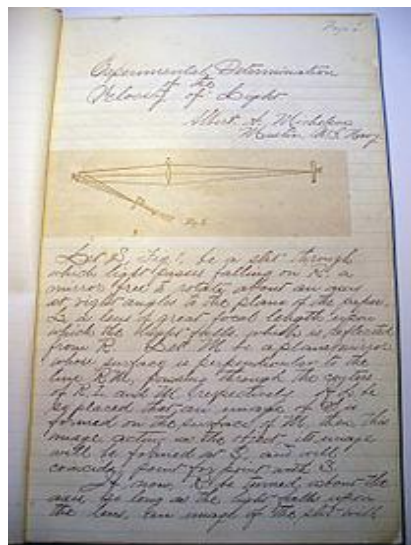 Page 1
Experimental Determination
of the
Velocity of Light
Albert A. Michelson
Master U.S. Navy
Fig 1.
Let S, Fig 1, be a slit through
which light passes falling on R, a
mirror free to rotate about an axis
at right angles to the plane of the paper.
L a lens of great focal length, upon
which the light falls which is reflected
from R. Let M be a plane mirror
whose surface is perpendicular to the
line R.M, passing through the centres
of R, L and M respectively. If L be
so placed that an image of S is
formed on the surface of M then, this
image acting as the object its image
will be formed at S, and will
coincide, point for point with S.
If now, R be turned about the
axis, so long as the light falls upon
the lens, an image of the slit will